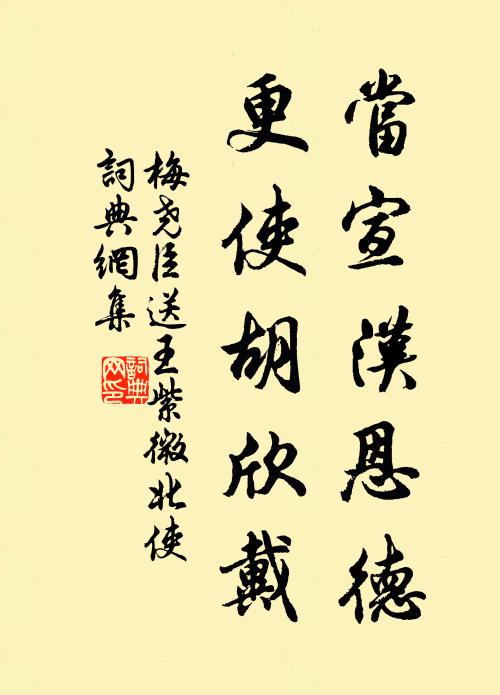 當宣漢恩德
更使胡欣戴
梅尧臣送王紫微北使
詞典網集
詞典
网印